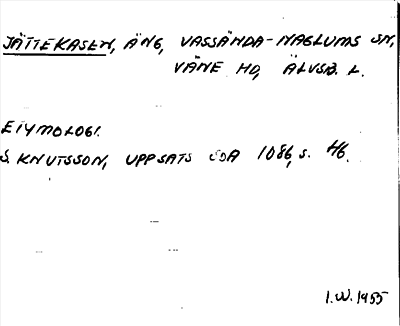 JÄTTEKASEN, ÄNG, VASSÄNDA-NAGLUMS SN,
VÄNE HD, ÄLVSB. L.
ETYMOLOGI.
S. KNUTSSON, UPPSATS SOA 1086, S. 46.
I.W. 1955